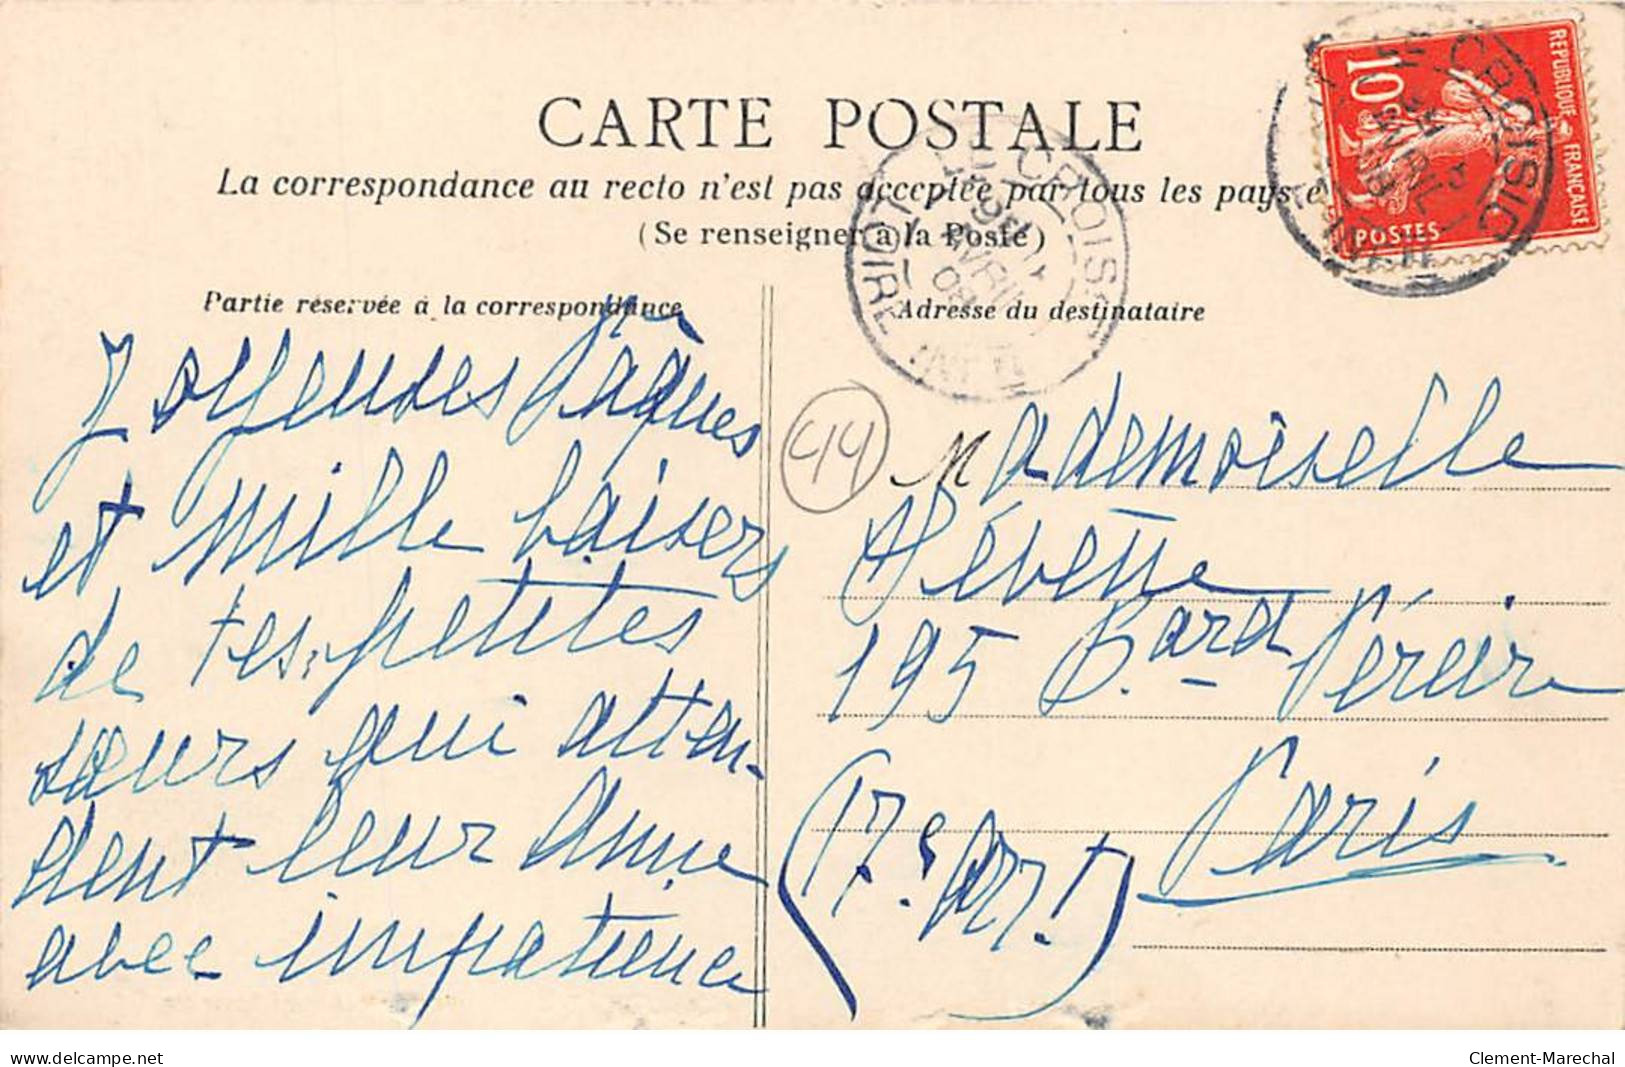 CARTE POSTALE
La correspondance au recto n'est pas acceptée par tous les pays e
(Se renseigner à la Poste)
Partie réservée à la correspondance
Joyeuses Pâques
et mille baisers
de tes petites
sœurs qui atten-
dent leur Anne
avec impatience
Adresse du destinataire
44
Mademoiselle
195 Bard Péreire
Paris
(17e Arrt)
REPUBLIQUE FRANÇAISE
10c
POSTES
LE CROISIC
AVRIL
LE CROISIC
AVRIL
08
LOIRE INFRE
delcampe.net
Clement-Marechal